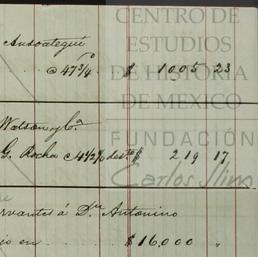 CENTRO DE
ESTUDIOS
DE HISTORIA
DE MEXICO
FUNDACIÓN
Carlos Slim
@ 47 3/4 % $ 1005 23
Watson y Ca
G. Rocha c 4 1/2 % desto $ 219 17
á Dn Antonino
en $ 16.000 "